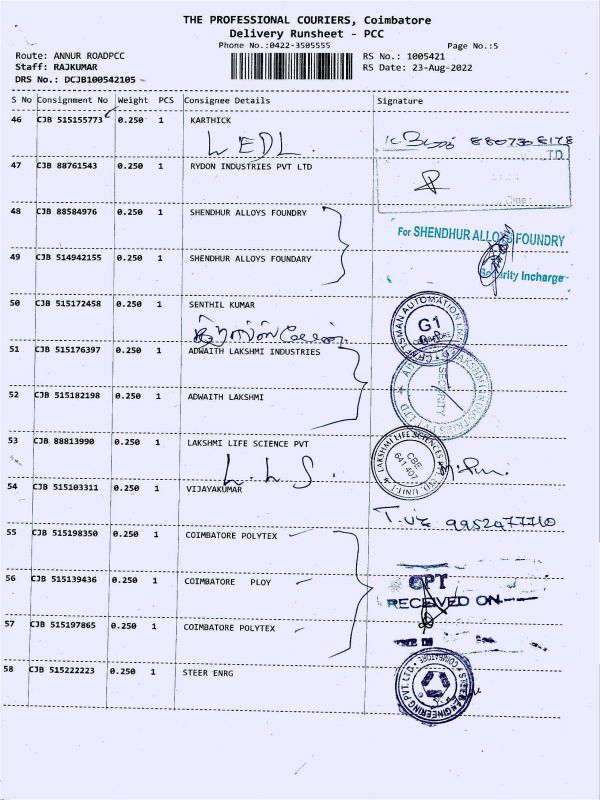 THE PROFESSIONAL COURIERS, Coimbatore
Delivery Runsheet - PCC
Phone No.:0422-3505555 Page No.:5
Route: ANNUR ROADPCC RS No.: 1005421
Staff: RAJKUMAR RS Date: 23-Aug-2022
DRS No.: DCJB100542105
S No Consignment No Weight PCS Consignee Details Signature
46 CJB 515155773 0.250 1 KARTHICK
LEDL.
47 CJB 88761543 0.250 1 RYDON INDUSTRIES PVT LTD
48 CJB 88584976 0.250 1 SHENDHUR ALLOYS FOUNDRY
For SHENDHUR ALLOYS FOUNDRY
49 CJB 514942155 0.250 1 SHENDHUR ALLOYS FOUNDARY
Security Incharge
50 CJB 515172458 0.250 1 SENTHIL KUMAR
G1
51 CJB 515176397 0.250 1 ADWAITH LAKSHMI INDUSTRIES
SECURITY
52 CJB 515182198 0.250 1 ADWAITH LAKSHMI
53 CJB 88813990 0.250 1 LAKSHMI LIFE SCIENCE PVT
L L S.
CBE
641 407
54 CJB 515103311 0.250 1 VIJAYAKUMAR
55 CJB 515198350 0.250 1 COIMBATORE POLYTEX
56 CJB 515139436 0.250 1 COIMBATORE PLOY
CPT
RECEIVED ON
57 CJB 515197865 0.250 1 COIMBATORE POLYTEX
58 CJB 515222223 0.250 1 STEER ENRG